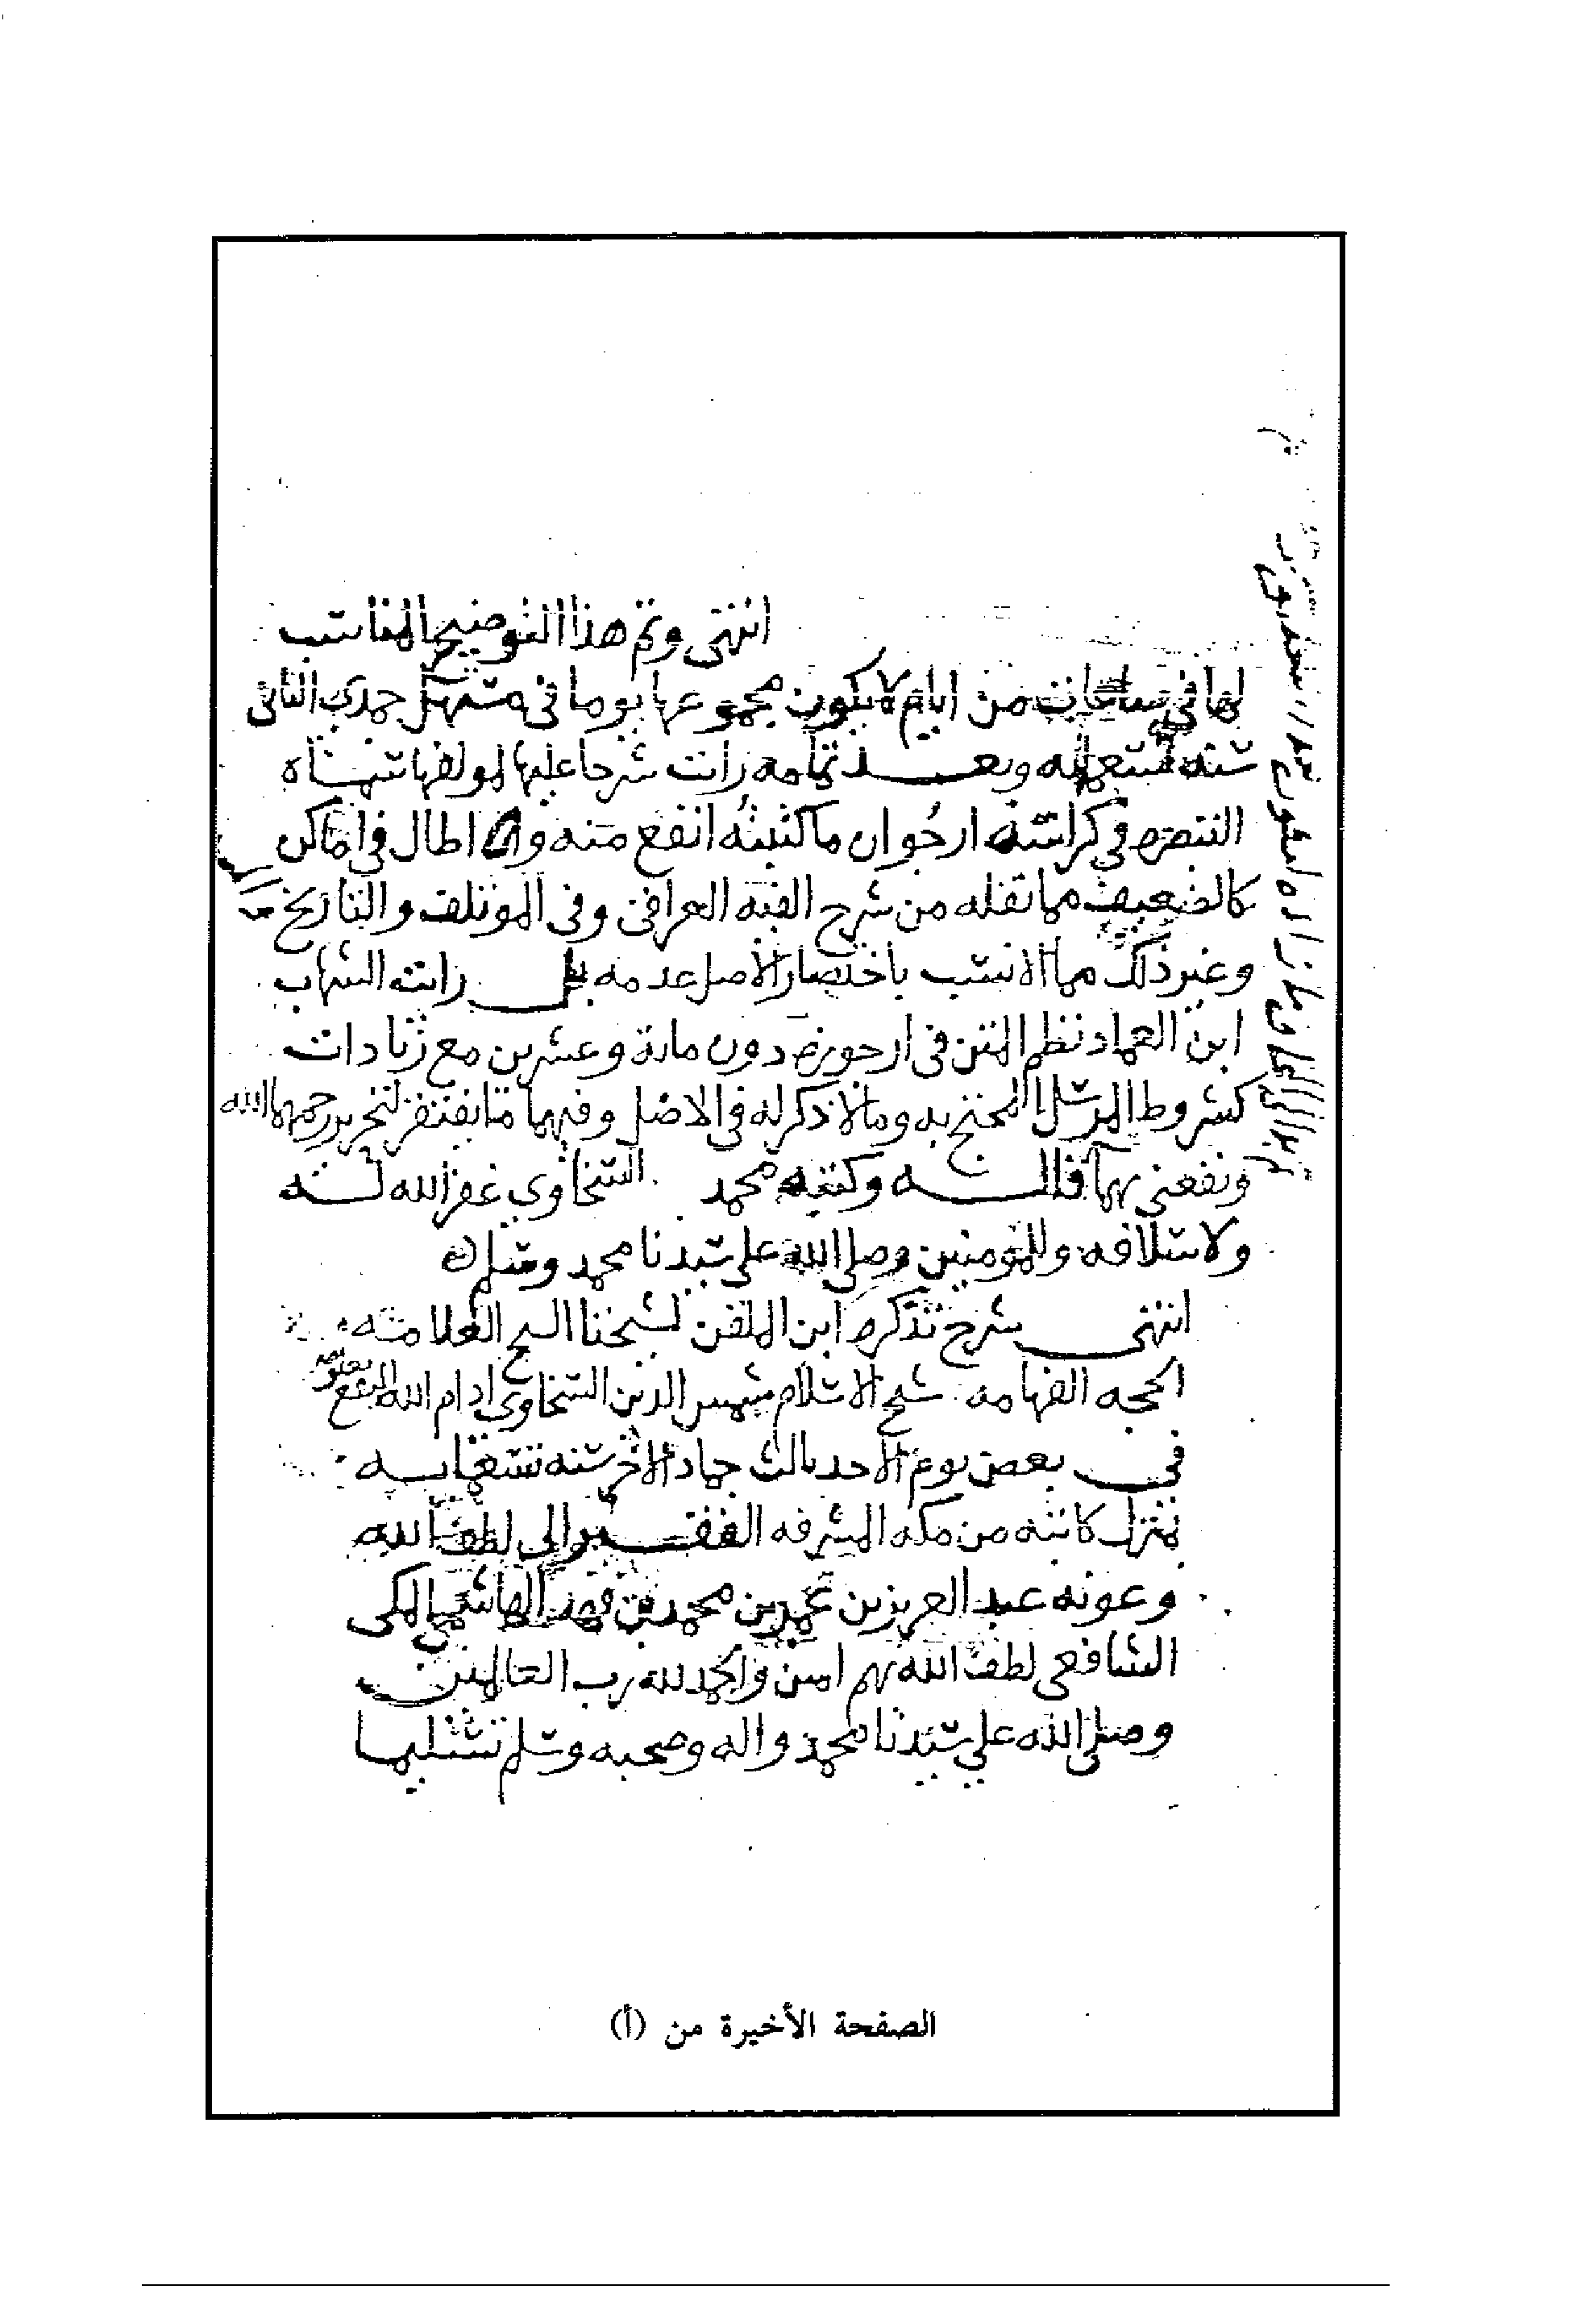 انتهى وتم هذا التوضيح المناسب
لها في ساعات من ايام لا يكون مجموعها يوما في مستهل جمدى الثاني
سنة تسعمايه وبعد تمامه رايت شرحا عليها لمولفها سماه
التبصره في كراسة ارجو ان ما كتبته انفع منه وان اطال في اماكن
كالضعيف مما نقله من شرح الفية العراقي وفي الموتلف والتاريخ
وغير ذلك مما الانسب باختصار الاصل عدمه بل رايت الشهاب
ابن العماد نظم المتن في ارجوزه دون ماية وعشرين مع زيادات
كشروط المرسل المحتج به ومالا ذكر له في الاصل وفيهما ما يفتقر لتحرير رحمهما الله
ونفعني بهما قاله وكتبه محمد السخاوي غفر الله له
ولاسلافه وللمومنين وصلى الله على سيدنا محمد وسلم
انتهى شرح تذكره ابن الملقن لشيخنا الشيخ العلامة
الحجه الفهامه شيخ الاسلام شمس الدين السخاوي ادام الله النفع بعلومه
في بعض يوم الاحد ثالث جماد الاخر سنه تسعمايه
بمنزل كاتبه من مكه المشرفه الفقير الى لطف الله
وعونه عبد العزيز بن عمر بن محمد بن فهد الهاشمي المكي
الشافعي لطف الله بهم امين والحمد لله رب العالمين
وصلى الله على سيدنا محمد واله وصحبه وسلم تسليما
الصفحة الأخيرة من (أ)